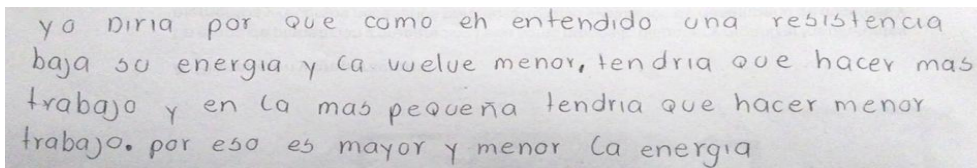 yo Diria por que como eh entendido una resistencia
baja su energia y la vuelve menor, tendria que hacer mas
trabajo y en la mas pequeña tendria que hacer menor
trabajo. por eso es mayor y menor la energia